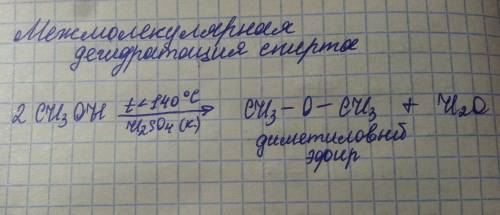 Межмолекулярная
дегидратация спирта
2 CH₃OH t<140°C H₂SO₄(к) → CH₃ – O – CH₃ + H₂O
диметиловый
эфир